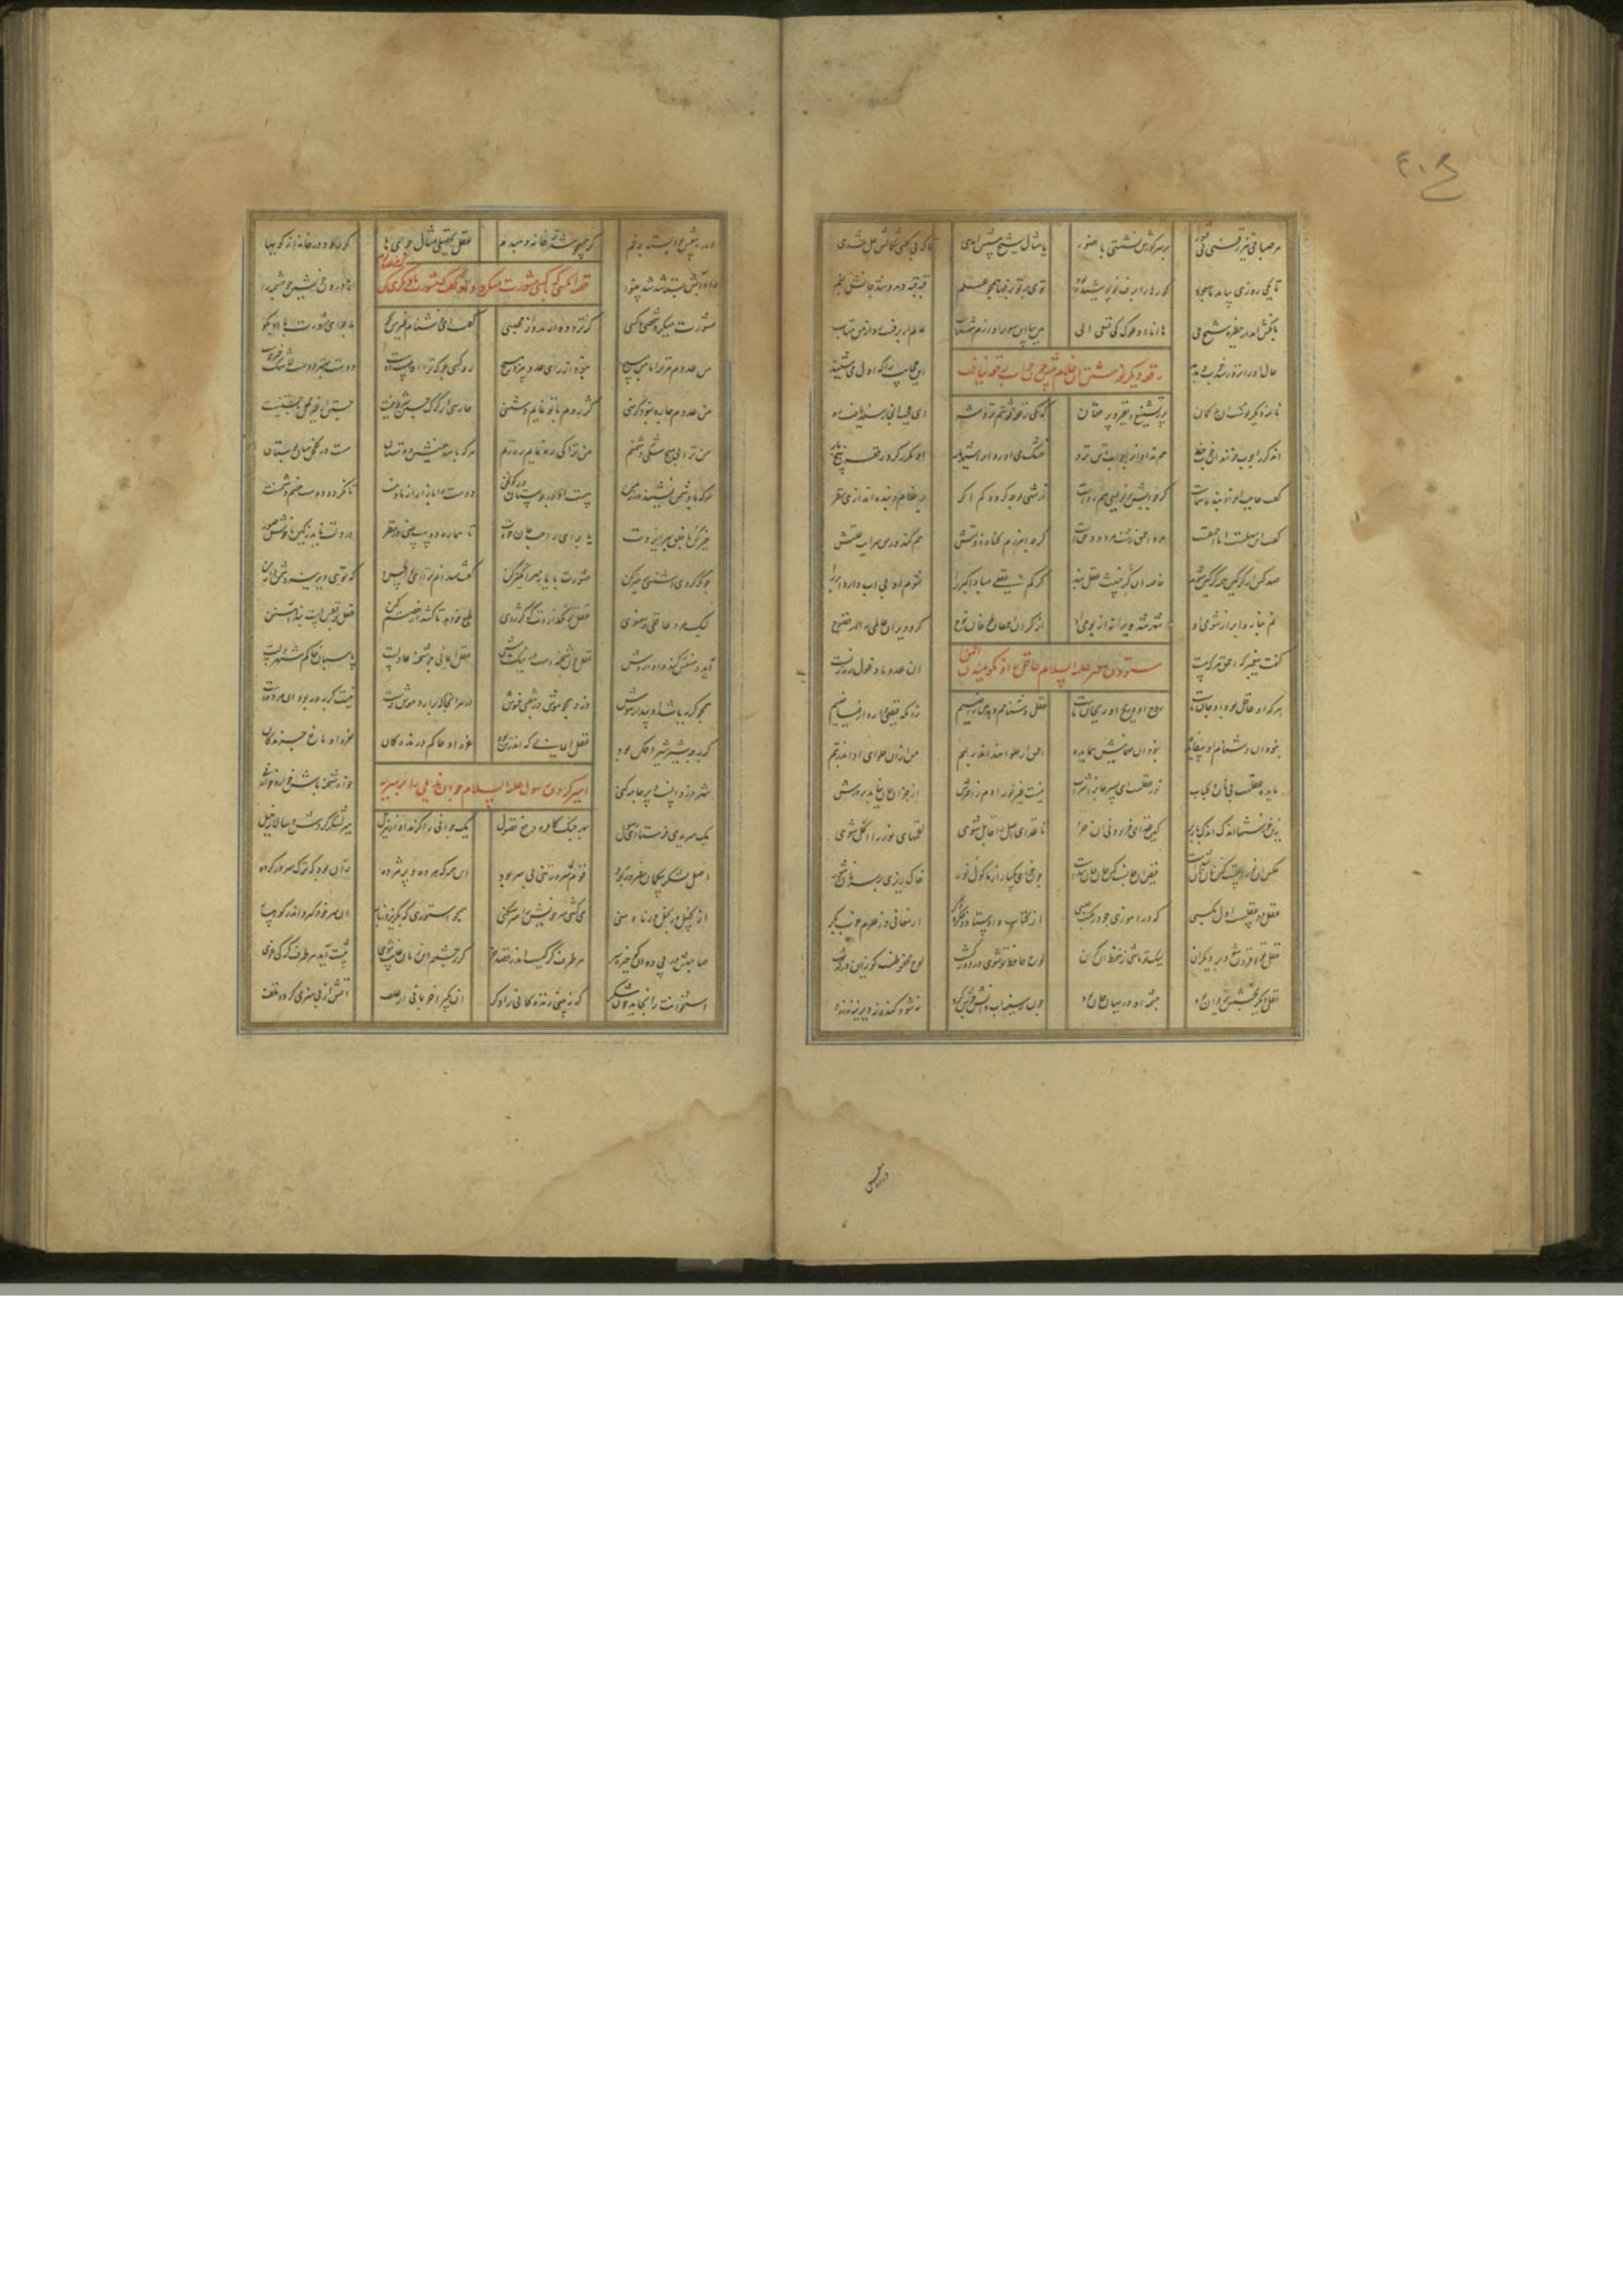 هر صباحی تیز رفتی سوی گور بر سر گورش نشستی با حضور یا مثال شیخ پیش آمدی تا که بی گفتی شکالش حل شدی
تا یکی روزی بیامد با سعود گورها را برف نو پوشیده بود توی بر تو برفها همچون علم قبه قبه دید و شد جانش بغم
بانگش آمد از حظیره شیخ حی ها انا ادعوک کی تسعی الی هین بیا این سو بر آوازم شتاب عالم ار برفست روی از من متاب
حال او زان روز شد خوب و بدید آن عجایب را که اول می شنید
رقعه دیگر نوشتن آن غلام پیش شاه چون جواب رقعه نیافت
نامه دیگر نوشت آن بدگمان پر ز تشنیع و نفیر و پر فغان که یکی رقعه نوشتم نزد شه ای عجب آنجا رسید و یافت ره
آن دگر را خواند هم آن خوب خد هم نداد او را جواب و تن بزد خشک می آورد او را شهریار او مکرر کرد رقعه پنج بار
گفت حاجب آخر او بنده شماست گر جوابش بر نویسی هم رواست از شهی تو چه گردد کم اگر بر غلام و بنده اندازی نظر
گفت این سهلست اما احمقست مرد احمق زشت و مردود حقست گرچه آمرزم گناه و زلتش هم کند بر من سرایت علتش
صد کس از گرگین همه گرگین شوند خاصه این گر خبیث عقل بند گر کم عقلی مبادا گبر را شوم او بی آب دارد ابر را
نم نبارد ابر از شومی او شهر شد ویرانه از بومی او از گر آن احمقان طوفان نوح کرد ویران عالمی را در فضوح
گفت پیغمبر که احمق هر که هست آن عدو ما و غول رهزنست
ستودن پیغمبر علیه السلام عاقل را و نکوهیدن احمق
هر که او عاقل بود او جان ماست روح او و ریح او ریحان ماست عقل دشنامم دهد من راضیم زانکه فیضی دارد از فیاضیم
نبود آن دشنام او بی فایده نبود آن مهمانیش بی مایده احمق ار حلوا نهد اندر لبم من از آن حلوای او اندر تبم
مایده عقلست نی نان و کباب نور عقلست ای پسر جان را شراب نیست غیر نور آدم را خورش از جز آن جان نیابد پرورش
زین خورشها اندک اندک باز بر کین غذای خر بود نی آن حر تا غذای اصل را قابل شوی لقمهای نور را آکل شوی
عکس آن نورست کین نان نان شدست فیض آن جانست کین جان جان شدست چون خوری یکبار از ماکول نور خاک ریزی بر سر نان و تنور
عقل دو عقلست اول مکسبی که در آموزی چو در مکتب صبی از کتاب و اوستاد و فکر و ذکر از معانی وز علوم خوب و بکر
عقل تو افزون شود بر دیگران لیک تو باشی ز حفظ آن گران لوح حافظ تو شوی در دور و گشت لوح محفوظست کو زین در گذشت
عقل دیگر بخشش یزدان بود چشمه او در میان جان بود چون ز سینه آب دانش جوش کرد نه شود گنده نه دیرینه نه زرد
ور ره پیشش بود بسته چه غم کو همی جوشد ز خانه دم بدم عقل تحصیلی مثال جویها کان رود در خانه از کویها
راه آبش بسته شد شد بینوا از درون خویشتن جو چشمه را
قصه آنکه کسی بکسی مشورت میکرد و او گفت که مشورت با دیگری کن
مشورت میکرد شخصی با کسی کز تردد وا رهد وز محبسی گفت ای خوش نام غیر من بجو ماجرای مشورت با او بگو
من عدوم مر ترا با من مپیچ نبود از رای عدو پیروز هیچ رو کسی جو که ترا او هست دوست دوست بهر دوست لاشک خیرجوست
من عدوم چاره نبود کز منی کژ روم با تو نمایم دشمنی حارسی از گرگ جستن شرط نیست جستن از غیر محل ناجستنیست
من ترا بی هیچ شکی دشمنم من ترا کی ره نمایم ره زنم هر که باشد همنشین دوستان هست در گلخن میان بوستان
هر که با دشمن نشیند در زمن هست او در بوستان در گولخن دوست را مازار از ما و منت تا نگردد دوست خصم و دشمنت
خیر کن با خلق بهر ایزدت یا برای راحت جان خودت تا هماره دوست بینی در نظر در دلت ناید ز کین ناخوش صور
چونکه کردی دشمنی پرهیز کن مشورت با یار مهرانگیز کن گفت میدانم ترا ای بوالحسن که توی دیرینه دشمن دار من
لیک مرد عاقلی و معنوی عقل تو نگذاردت که کژ روی طبع خواهد تا کشد از خصم کین عقل بر نفس است بند آهنین
آید و منعش کند وا داردش عقل چون شحنه است در نیک و بدش عقل ایمانی چو شحنه عادلست پاسبان و حاکم شهر دلست
همچو گربه باشد او بیدار هوش دزد همچو موش در در هر آنجا که برآرد موش دست نیست گربه ور بود آن مرده است
گربه چه شیر شیرافکن بود عقل ایمانی که اندر تن بود غره او حاکم درندگان نعره او مانع چرندگان
شهر پر دزدست و پر جامه کنی خواه شحنه باش گو و خواه نی
امیر کردن رسول علیه السلام جوان هذیلی را بر سریه
یک سریه می فرستادی رسول بهر جنگ کافر و دفع فضول یک جوانی را گزید او از هذیل میر لشکر کردش و سالار خیل
اصل لشکر بیگمان سرور بود قوم بی سرور تنی بی سر بود این همه که مرده و پژمرده زان بود که ترک سرور کرده
از کسل وز بخل وز ما و منی می کشی سر خویش را سر میکنی همچو استوری که بگریزد ز بار او سر خود گیرد اندر کوهسار
صاحبش در پی دوان کای خیره سر هر طرف گرگیست اندر قصد خر گر ز چشمم این زمان غایب شوی پیشت آید هر طرف گرگ قوی
استخوانت را بخاید چون شکر که نبینی زندگانی را دگر آن مگیر آخر بمانی از علف آتش از بی هیزمی گردد تلف